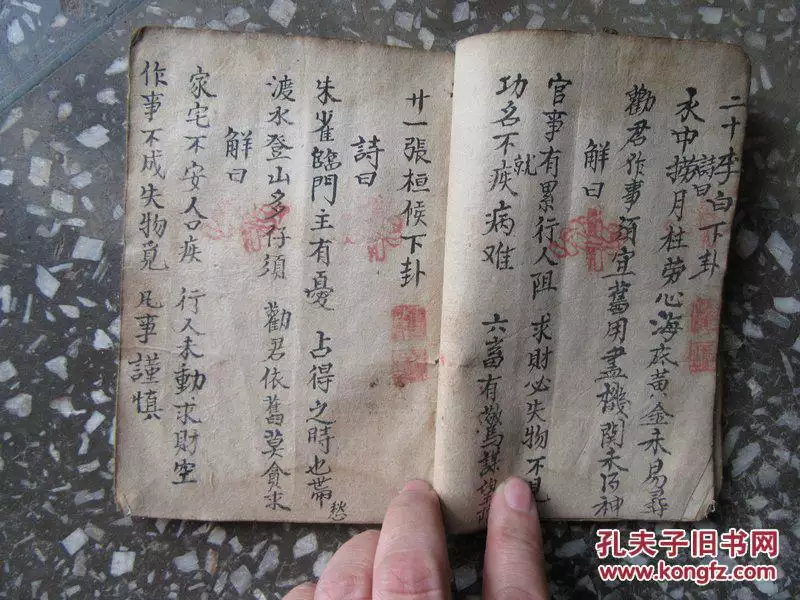 二十李白下卦
詩曰
水中撈月枉勞心海底黃金未易尋
勸君作事須宜舊用盡機関未得神
解曰
官事有累行人阻 求財必失物不見
功名不就疾病难 六畜有
廿一張桓侯下卦
詩曰
朱雀臨門主有憂 占得之時也帶愁
渡水登山多仔須 勸君依舊莫貪求
解曰
家宅不安人口疾 行人未動求財空
作事不成失物覓 凡事謹慎
孔夫子旧书网
www.kongfz.com